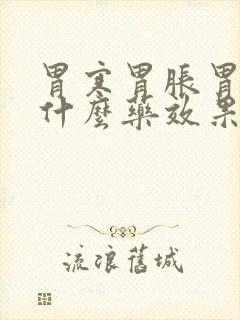 胃寒胃脹胃
什麼藥效果
流浪舊城